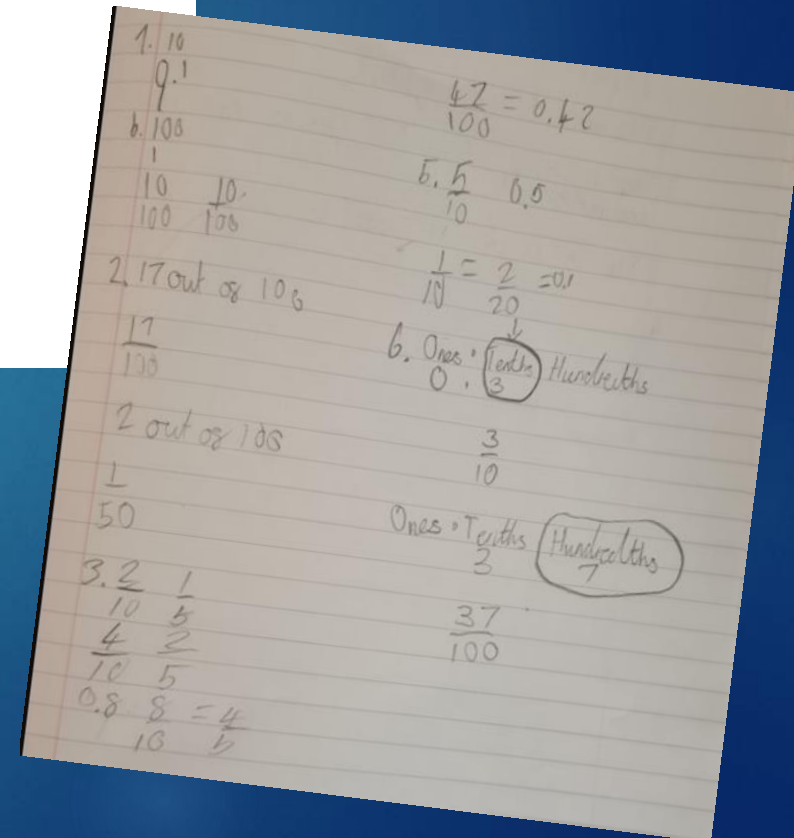 1. 10
9.1
b. 100
1
10 10
100 100
2. 17 out of 100
17
100
2 out of 100
1
50
3. 2 1
10 5
4 2
10 5
0.8 8 = 4
10 5
42 = 0.42
100
5. 5 0.5
10
1 = 2 = 0.1
10 20
6. Ones . Tenths Hundredths
0 . 3
3
10
Ones . Tenths Hundredths
3 7
37
100